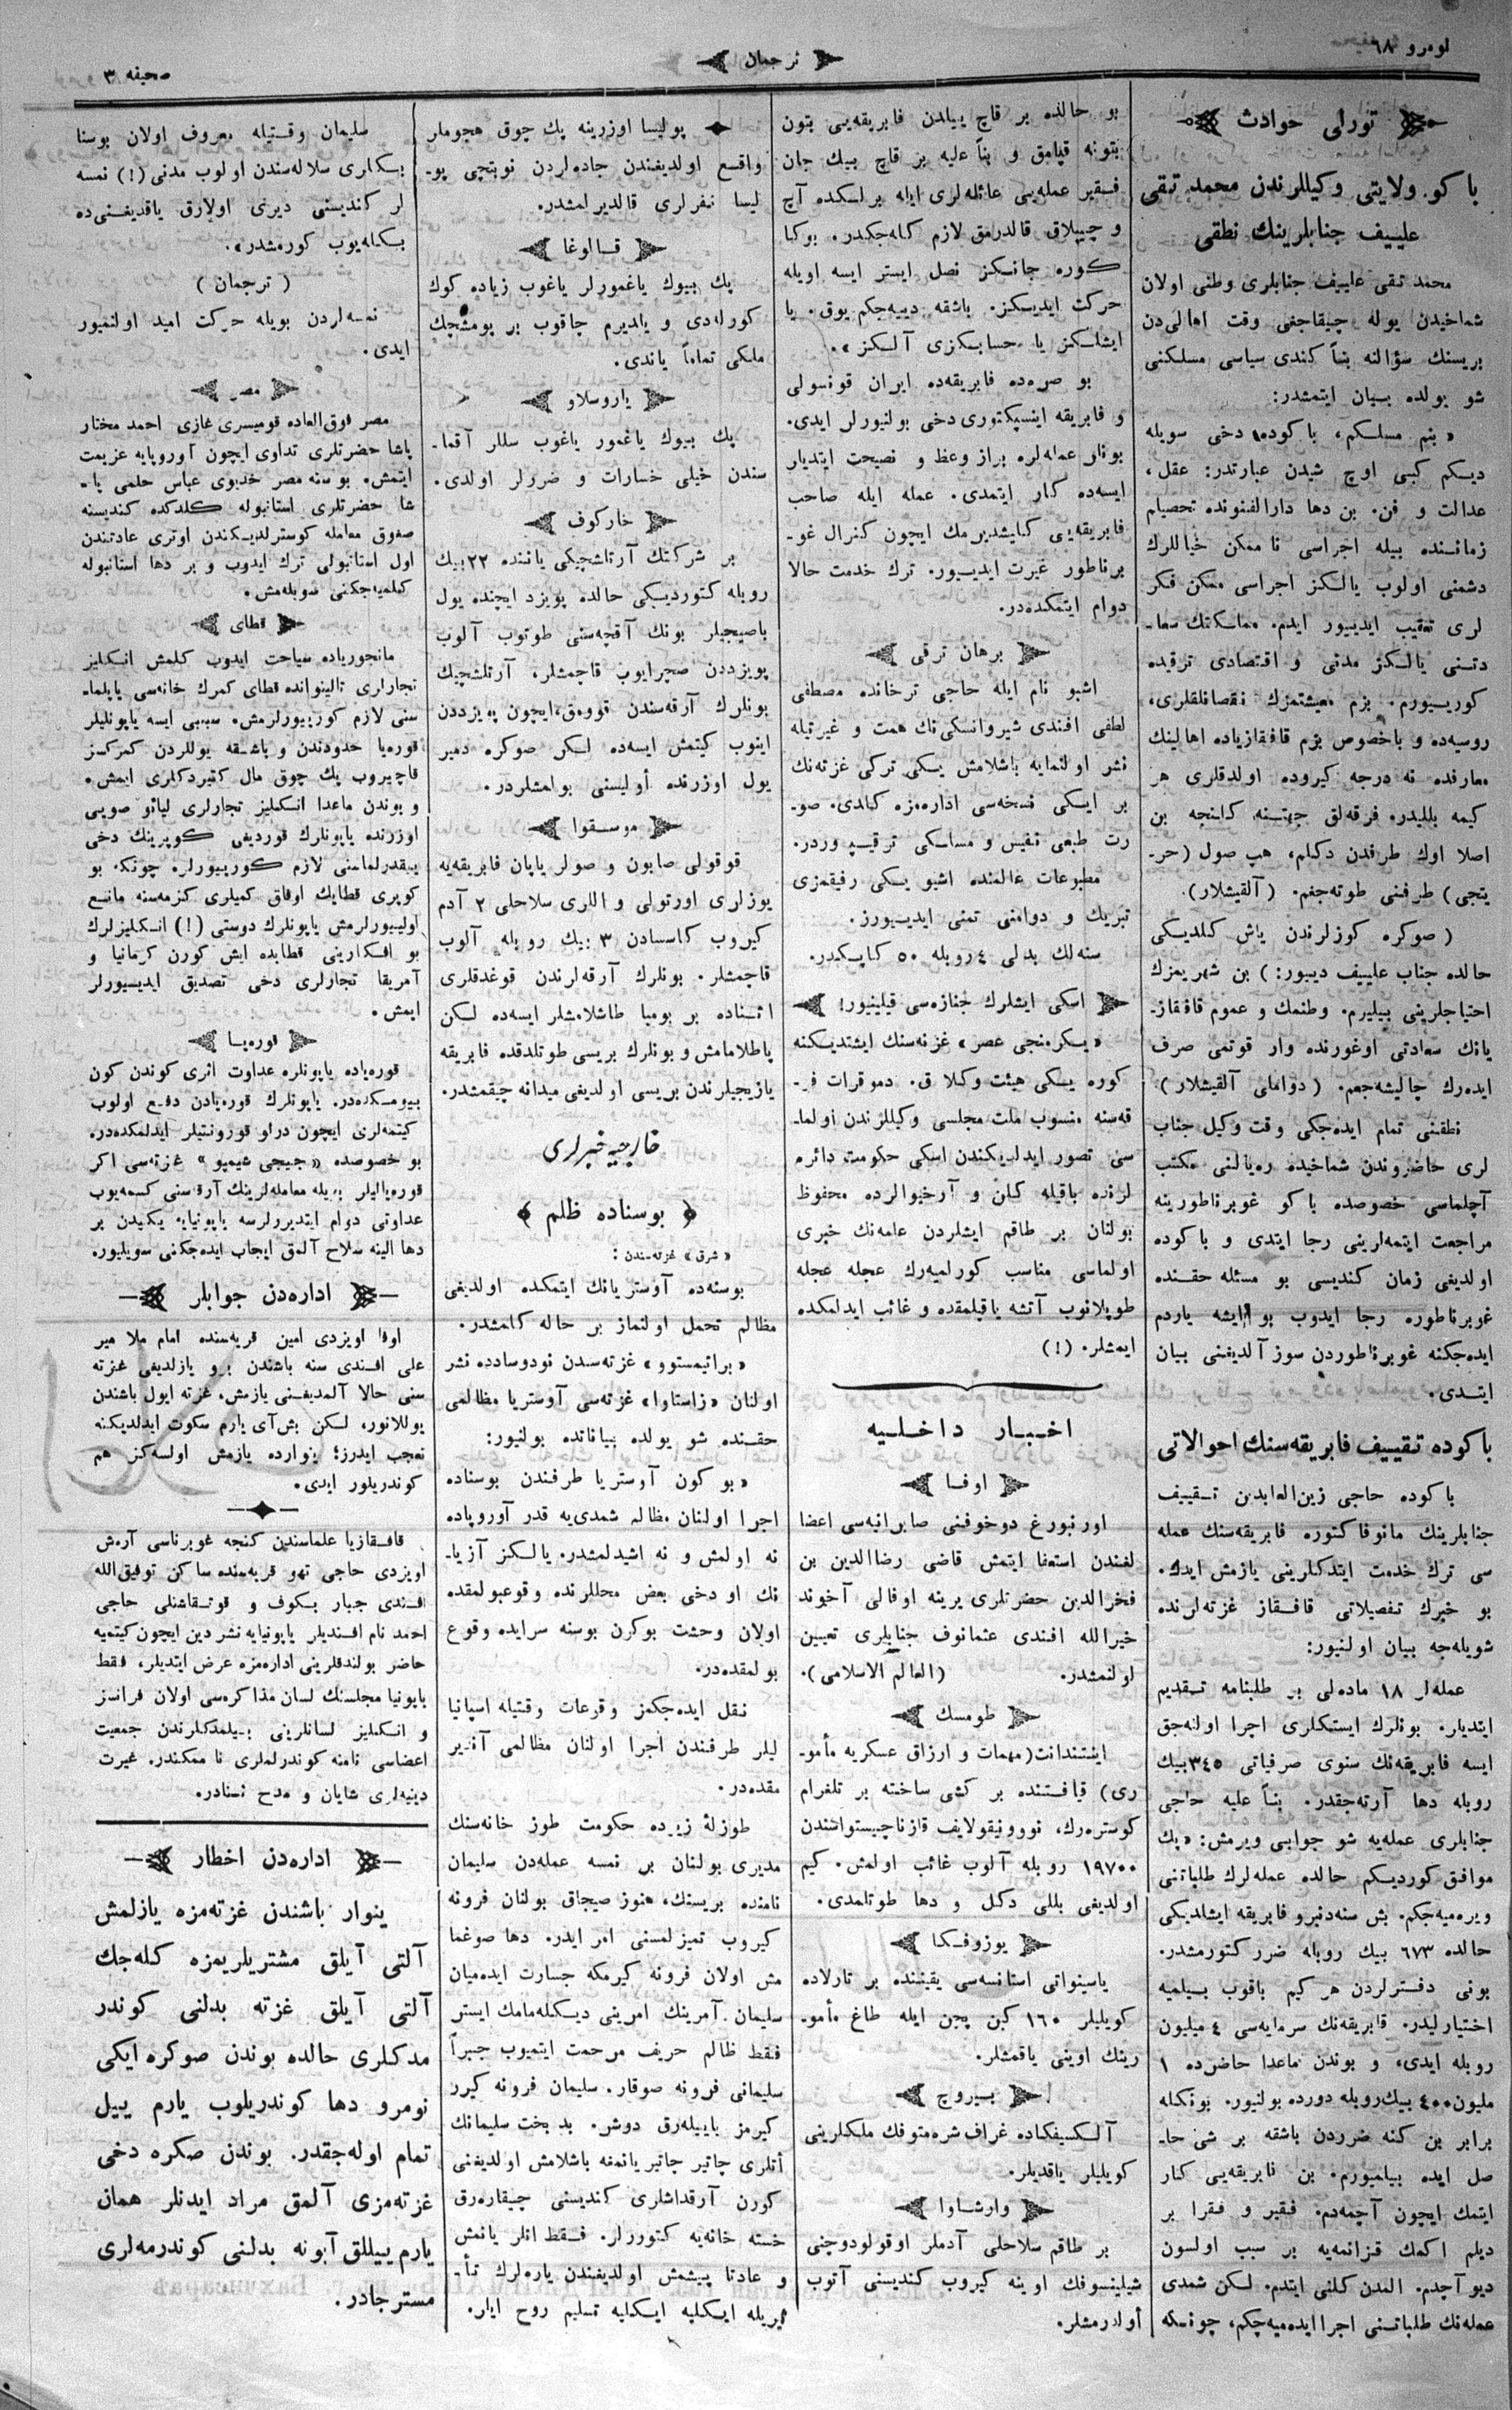 نومرو ٦٨
ترجمان
صحیفه ٣
تورلی حوادث
باكو ولایتی وكیللرندن محمد تقی
علییف جنابلرینك نطقی
محمد تقی علییف جنابلری وطنی اولان
شماخیدن یوله چیقاجغی وقت اهالی‌دن
بریسنك سؤالنه بنأ كندی سیاسی مسلكنی
شو یولده بیان ایتمشدر:
« بنم مسلكم، باكوده دخی سویله
دیكم كبی اوچ شیدن عبارتدر: عقل،
عدالت و فن. بن دها دارالفنونده تحصیلم
زماننده بیله اجراسی ناممكن خیاللرك
دشمنی اولوب یالكز اجراسی ممكن فكر
لری تعقیب ایدییور ایدم. مملكتك سعا-
دتنی یالكز مدنی و اقتصادی ترقیده
كورییورم. بزم معیشتمزك نقصانلقلری،
روسیه‌ده و باخصوص بزم قافقازیاده اهالینك
معارفده نه درجه كیروده اولدقلری هر
كیمه بللیدر. فرقه‌لق جهتنه كلنجه بن
اصلا اوك طرفدن دكلم، هپ صول (حر-
یتجی) طرفنی طوته‌جغم. (آلقیشلار).
(صوكره كوزلرندن یاش كلدیكی
حالده جناب علییف دییور:) بن شهریمزك
احتیاجلرینی بیلیرم. وطنمك و عموم قافقاز-
یانك سعادتی اوغورنده وار قوتمی صرف
ایده‌رك چالیشه‌جغم. (دواملی آلقیشلار).
نطقنی تمام ایده‌جكی وقت وكیل جناب
لری حاضروندن شماخیده ره‌یالنی مكتب
آچلماسی خصوصده باكو غوبرناطورینه
مراجعت ایتمه‌لرینی رجا ایتدی و باكوده
اولدیغی زمان كندیسی بو مسئله حقنده
غوبرناطوره رجا ایدوب بو ایشه یاردم
ایده‌جكنه غوبرناطوردن سوز آلدیغنی بیان
ایتدی.
باكوده تقییف فابریقه‌سنك احوالاتی
باكوده حاجی زین‌العابدین تقییف
جنابلرینك مانوفاكتوره فابریقه‌سنك عمله
سی ترك خدمت ایتدكلرینی یازمش ایدك.
بو خبرك تفصیلاتی قافقاز غزته‌لرنده
شویله‌جه بیان اولنیور:
عمله‌لر ١٨ ماده‌لی بر طلبنامه تقدیم
ایتدیلر. بونلرك ایستكلری اجرا اولنه‌جق
ایسه فابریقه‌نك سنوی صرفیاتی ٣٤٥ بیك
روبله دها آرته‌جقدر. بنأ علیه حاجی
جنابلری عمله‌یه شو جوابی ویرمش: «پك
موافق كوردیكم حالده عمله‌لرك طلباتنی
ویره‌میه‌جكم. بش سنه‌دنبرو فابریقه ایشلدیكی
حالده ٦٧٣ بیك روبله ضرر كتورمشدر.
بونی دفترلردن هر كیم باقوب بیلمیه
اختیارلیدر. فابریقه‌نك سرمایه‌سی ٤ میلیون
روبله ایدی، و بوندن ماعدا حاضرده ١
ملیون ٤٠٠ بیك روبله دورده بولنیور. بونكله
برابر بن كنه ضرردن باشقه بر شی حا-
صل ایده بیلمیورم. بن فابریقه‌یی كنار
ایتمك ایچون آچمه‌دم. فقیر و فقرا بر
دیلم اكمك قزانمه‌یه بر سبب اولسون
دیو آچدم. المدن كلنی ایتدم. لكن شمدی
عمله‌نك طلباتنی اجرا ایده‌میه‌جكم، چونكه
بو حالده بر قاچ ییلدن فابریقه‌یی بتون
بتونه قپامق و بنأ علیه بر قاچ بیك جان
فقیر عمله‌یی عائله‌لری ایله برلكده آچ
و چیپلاق قالدرمق لازم كله‌جكدر. بوكا
كوره جانكز نصل ایستر ایسه اویله
حركت ایدیكز. باشقه دییه‌جكم یوق. یا
ایشلكز یا حسابكزی آلكز».
بو صره‌ده فابریقه‌ده ایران قونسولی
و فابریقه اینسپكتوری دخی بولنیورلر ایدی.
بونلر عمله‌لره براز وعظ و نصیحت ایتدیلر
ایسه‌ده كار ایتمدی. عمله ایله صاحب
فابریقه‌یی كلیشدیرمك ایچون كنرال غو-
برناطور غیرت ایدییور. ترك خدمت حالا
دوام ایتمكده‌در.
برهان ترقی
اشبو نام ایله حاجی ترخانده مصطفی
لطفی افندی شیروانسكی‌نك همت و غیرتیله
نشر اولنمایه باشلامش یكی تركی غزته‌نك
بر ایكی نسخه‌سی اداره‌مزه كلدی. صو-
رت طبعی نفیس و مسلكی ترقیپروردر.
مطبوعات عالمنده اشبو یكی رفیقمزی
تبریك و دوامنی تمنی ایدییورز.
سنه‌لك بدلی ٤ روبله ٥٠ كاپكدر.
اسكی ایشلرك جنازه‌سی قیلینیور!
«یكرمنجی عصر» غزته‌سنك ایشتدیكنه
كوره یكی هیئت وكلا ق. دموقرات فر-
قه‌سنه منسوب ملت مجلسی وكیللرندن اولما-
سی تصور ایدلدیكندن اسكی حكومت دائره
لرنده باقیله كلن و آرخیوالرده محفوظ
بولنان بر طاقم ایشلردن عامه‌نك خبری
اولماسی مناسب كورلمیه‌رك عجله عجله
طوپلانوب آتشه یاقیلمقده و غائب ایدلمكده
ایمشلر. (!)
اخبار داخلیه
اوفا
اورنبورغ دوخوفنی صابرانیه‌سی اعضا
لغندن استعفا ایتمش قاضی رضاالدین بن
فخرالدین حضرتلری یرینه اوفالی آخوند
خیرالله افندی عثمانوف جنابلری تعیین
اولنمشدر. (العالم الاسلامی).
طومسك
اینتندانت (مهمات و ارزاق عسكریه مأمو-
ری) قیافتنده بر كشی ساخته بر تلغرام
كوستره‌رك، نوونیقولایف قازناچیستواسندن
١٩٧٠٠ روبله آلوب غائب اولمش. كیم
اولدیغی بللی دكل و دها طوتلمدی.
یوزوفكا
یاسینواتی استانسه‌سی یقیننده بر تارلاده
كویلیلر ١٦٠ كبن پچن ایله طاغ مأمو-
رینك اوینی یاقمشلر.
بیروچ
آلكسیفكاده غراف شره‌متوفك ملكلرینی
كویلیلر یاقدیلر.
وارشاوا
بر طاقم سلاحلی آدملر اوقولودوچنی
شیلینسوفك اوینه كیروب كندیسنی آتوب
أولدرمشلر.
پولیسا اوزرینه پك چوق هجوملر
واقع اولدیغندن جاده‌لردن نوبتچی پو-
لیسا نفرلری قالدیرلمشدر.
قالوغا
پك بیوك یاغمورلر یاغوب زیاده كوك
كورلدی و یلدیرم چاقوب بر پومشچك
ملكی تماماً یاندی.
یاروسلاو
پك بیوك یاغمور یاغوب سللر آقما-
سندن خیلی خسارات و ضررلر اولدی.
خاركوف
بر شركتك آرتلشچیكی یاننده ٢٢ بیك
روبله كتوردیكی حالده پویزد ایچنده یول
باصیجیلر بونك آقچه‌سنی طوتوب آلوب
پویزددن صچرایوب قاچمشلر، آرتلشچیك
بونلرك آرقه‌سندن قوومق ایچون پویزددن
اینوب كیتمش ایسه‌ده لكن صوكره دمیر
یول اوزرنده أولیسنی بولمشلردر.
موسقوا
قوقولی صابون و صولر یاپان فابریقه‌یه
یوزلری اورتولی و اللری سلاحلی ٢ آدم
كیروب كاسسادن ٣ بیك روبله آلوب
قاچمشلر. بونلرك آرقه‌لرندن قوغدقلری
اثناده بر بومبا طاشلامشلر ایسه‌ده لكن
پاطلامامش و بونلرك بریسی طوتلدقده فابریقه
یازیجیلرندن بریسی اولدیغی میدانه چیقمشدر.
خارجیه خبرلری
﴿ بوسناده ظلم ﴾
« شرق » غزته‌سندن:
بوسنه‌ده آوستریانك ایتمكده اولدیغی
مظالم تحمل اولنماز بر حاله كلمشدر.
«براتیمستوو» غزته‌سندن نودوسادده نشر
اولنان «زاستاوا» غزته‌سی آوستریا مظالمی
حقنده شو یولده بیاناتده بولنیور:
«بو كون آوستریا طرفندن بوسناده
اجرا اولنان مظالم شمدی‌یه قدر آوروپاده
نه اولمش و نه اشیدلمشدر. یالكز آزیا-
نك او دخی بعض محللرنده وقوعبولمقده
اولان وحشت بوكون بوسنه سرایده وقوع
بولمقده‌در.
نقل ایده‌جكمز وقوعات وقتیله اسپانیا
لیلر طرفندن اجرا اولنان مظالمی آكدیر
مقده‌در.
طوزلهٔ زیرده حكومت طوز خانه‌سنك
مدیری بولنان بر نمسه عمله‌دن سلیمان
نامنده بریسنك، هنوز صیجاق بولنان فرونه
كیروب تمیزلمسنی امر ایدر. دها صوغما
مش اولان فرونه كیرمكه جسارت ایده‌میان
سلیمان آمرینك امرینی دیكله‌مامك ایستر
فقط ظالم حریف مرحمت ایتمیوب جبراً
سلیمانی فرونه صوقار. سلیمان فرونه كیرر
كیرمز باییله‌رق دوشر. بدبخت سلیمانك
أتلری چاتیر چاتیر یانمغه باشلامش اولدیغنی
كورن آرقداشلری كندیسنی چیقاره‌رق
خسته خانه‌یه كتوررلر. فقط اتلر یانمش
و عادتا پیشمش اولدیغندن یاره‌لرك تأ-
ثیریله ایكلیه ایكلیه تسلیم روح ایلر.
سلیمان وقتیله معروف اولان بوسنا
بكلری سلاله‌سندن اولوب مدنی (!) نمسه
لر كندیسنی دیری اولارق یاقدیغنی‌ده
بكله‌یوب كورمشدر».
(ترجمان)
نمسه‌لردن بویله حركت امید اولنمیور
ایدی.
مصر
مصر فوق‌العاده قومیسری غازی احمد مختار
پاشا حضرتلری تداوی ایچون آوروپایه عزیمت
ایتمش. بو سنه مصر خدیوی عباس حلمی پا-
شا حضرتلری استانبوله كلدكده كندیسنه
صغوق معامله كوسترلدیكندن اوتری عادتندن
اول استانبولی ترك ایدوب و بر دها استانبوله
كلمیه‌جكنی سویله‌مش.
قطای
مانجوریاده سیاحت ایدوب كلمش انكلیز
تجارلری تالینوانده قطای كمرك خانه‌سی یاپلما-
سنی لازم كورییورلرمش. سببی ایسه یاپونلیلر
قوره‌یا حدودندن و باشقه یوللردن كمركسز
قاچیروب پك چوق مال كتیردكلری ایمش.
و بوندن ماعدا انكلیز تجارلری لیائو صویی
اوزرنده یاپونلرك قوردیغی كوپرینك دخی
ییقدرلماسنی لازم كورییورلر. چونكه بو
كوپری قطایك اوفاق كمیلری كزمه‌سنه مانع
اولییورلرمش یاپونلرك دوستی (!) انكلیزلرك
بو افكارینی قطایده ایش كورن كرمانیا و
آمریقا تجارلری دخی تصدیق ایدییورلر
ایمش.
قوره‌یا
قوره‌یاده یاپونلره عداوت اثری كوندن كون
بیومكده‌در. یاپونلرك قوره‌یادن دفع اولوب
كیتمه‌لری ایچون درلو قورونتیلر ایدلمكده‌در.
بو خصوصده «جیجی شیمپو» غزته‌سی اكر
قوره‌یالیلر بویله معامله‌لرینك آرقه‌سنی كسمه‌یوب
عداوتی دوام ایتدیررلرسه یاپونیایه یكیدن بر
دها الینه سلاح آلمق ایجاب ایده‌جكنی سویلیور.
اداره‌دن جوابلر
اوفا اویزدی امین قریه‌سنده امام ملا میر
علی افندی سنه باشندن برو یازلدیغی غزته
سنی حالا آلمدیغنی یازمش. غزته ایول باشندن
یوللانور، لكن بش آی یارم سكوت ایدلدیكنه
تعجب ایدرز؛ یوارده یازمش اولسه‌كز هم
كوندریلور ایدی.
قافقازیا علماسندن كنجه غوبرناسی آره‌ش
اویزدی حاجی تهو قریه‌سنده ساكن توفیق‌الله
افندی جبار بكوف و قوتقاشنلی حاجی
احمد نام افندیلر یاپونیایه نشر دین ایچون كیتمیه
حاضر بولندقلرینی اداره‌مزه عرض ایتدیلر، فقط
یاپونیا مجلسنك لسان مذاكره‌سی اولان فرانسز
و انكلیز لسانلرینی بیلمدكلرندن جمعیت
اعضاسی نامنه كوندرلملری ناممكندر. غیرت
دینیه‌لری شایان و مدح ثنادر.
اداره‌دن اخطار
ینوار باشندن غزته‌مزه یازلمش
آلتی آیلق مشتریلریمزه كله‌جك
آلتی آیلق غزته بدلنی كوندر
مدكلری حالده بوندن صوكره ایكی
نومرو دها كوندریلوب یارم ییل
تمام اوله‌جقدر. بوندن صكره دخی
غزته‌مزی آلمق مراد ایدنلر همان
یارم ییللق آبونه بدلنی كوندرمه‌لری
مسترجادر.